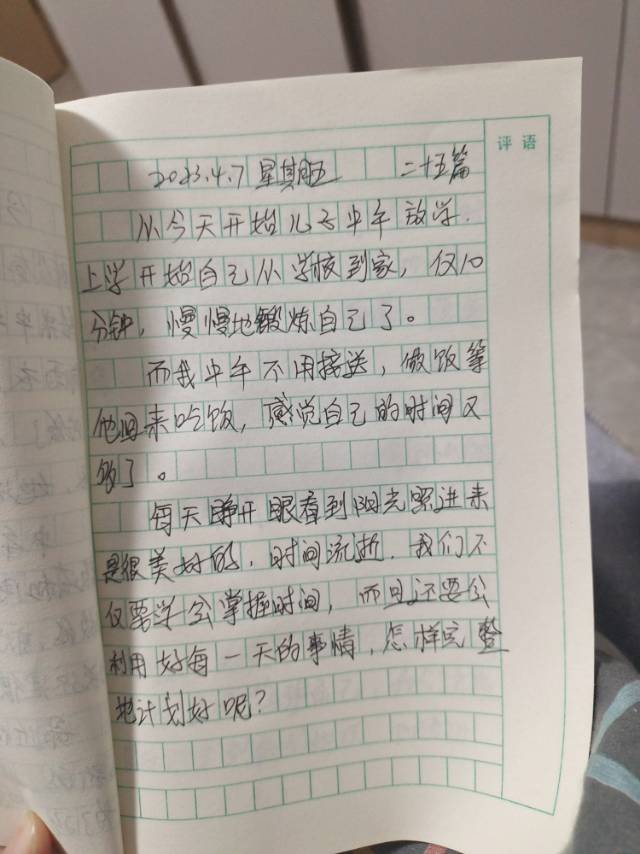 评语
2023.4.7 星期五 二十五篇
从今天开始儿子中午放学.
上学开始自己从学校到家，仅10
分钟，慢慢地锻炼自己了。
而我中午不用接送，做饭等
他回来吃饭，感觉自己的时间又
够了。
每天睁开眼看到阳光照进来
是很美好的，时间流逝.我们不
仅要学会掌握时间，而且还要会
利用好每一天的事情，怎样完整
地计划好呢？